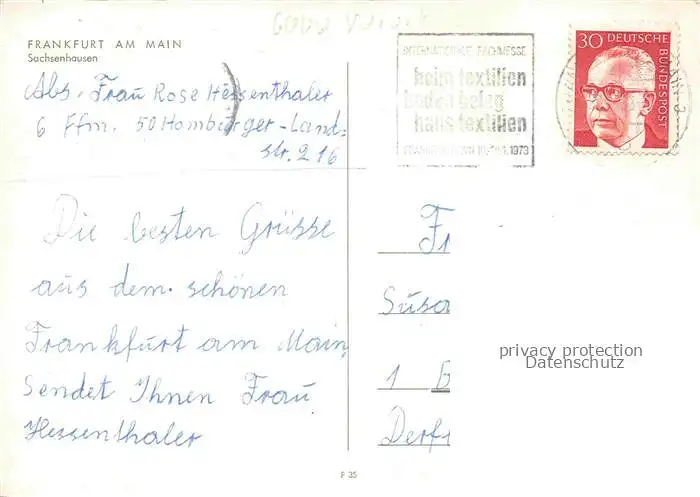 FRANKFURT AM MAIN
Sachsenhausen
Abs. Frau Rose Hessenthaler
6 Ffm. 50 Homburger-Land-
str. 216
Die besten Grüsse
aus dem schönen
Frankfurt am Main
sendet Ihnen Frau
Hessenthaler
INTERNATIONALE FACHMESSE
heim textilien
boden belag
haus textilien
1973
30 DEUTSCHE
BUNDESPOST
Fr
Susa
1
Derf
privacy protection
Datenschutz
P 35